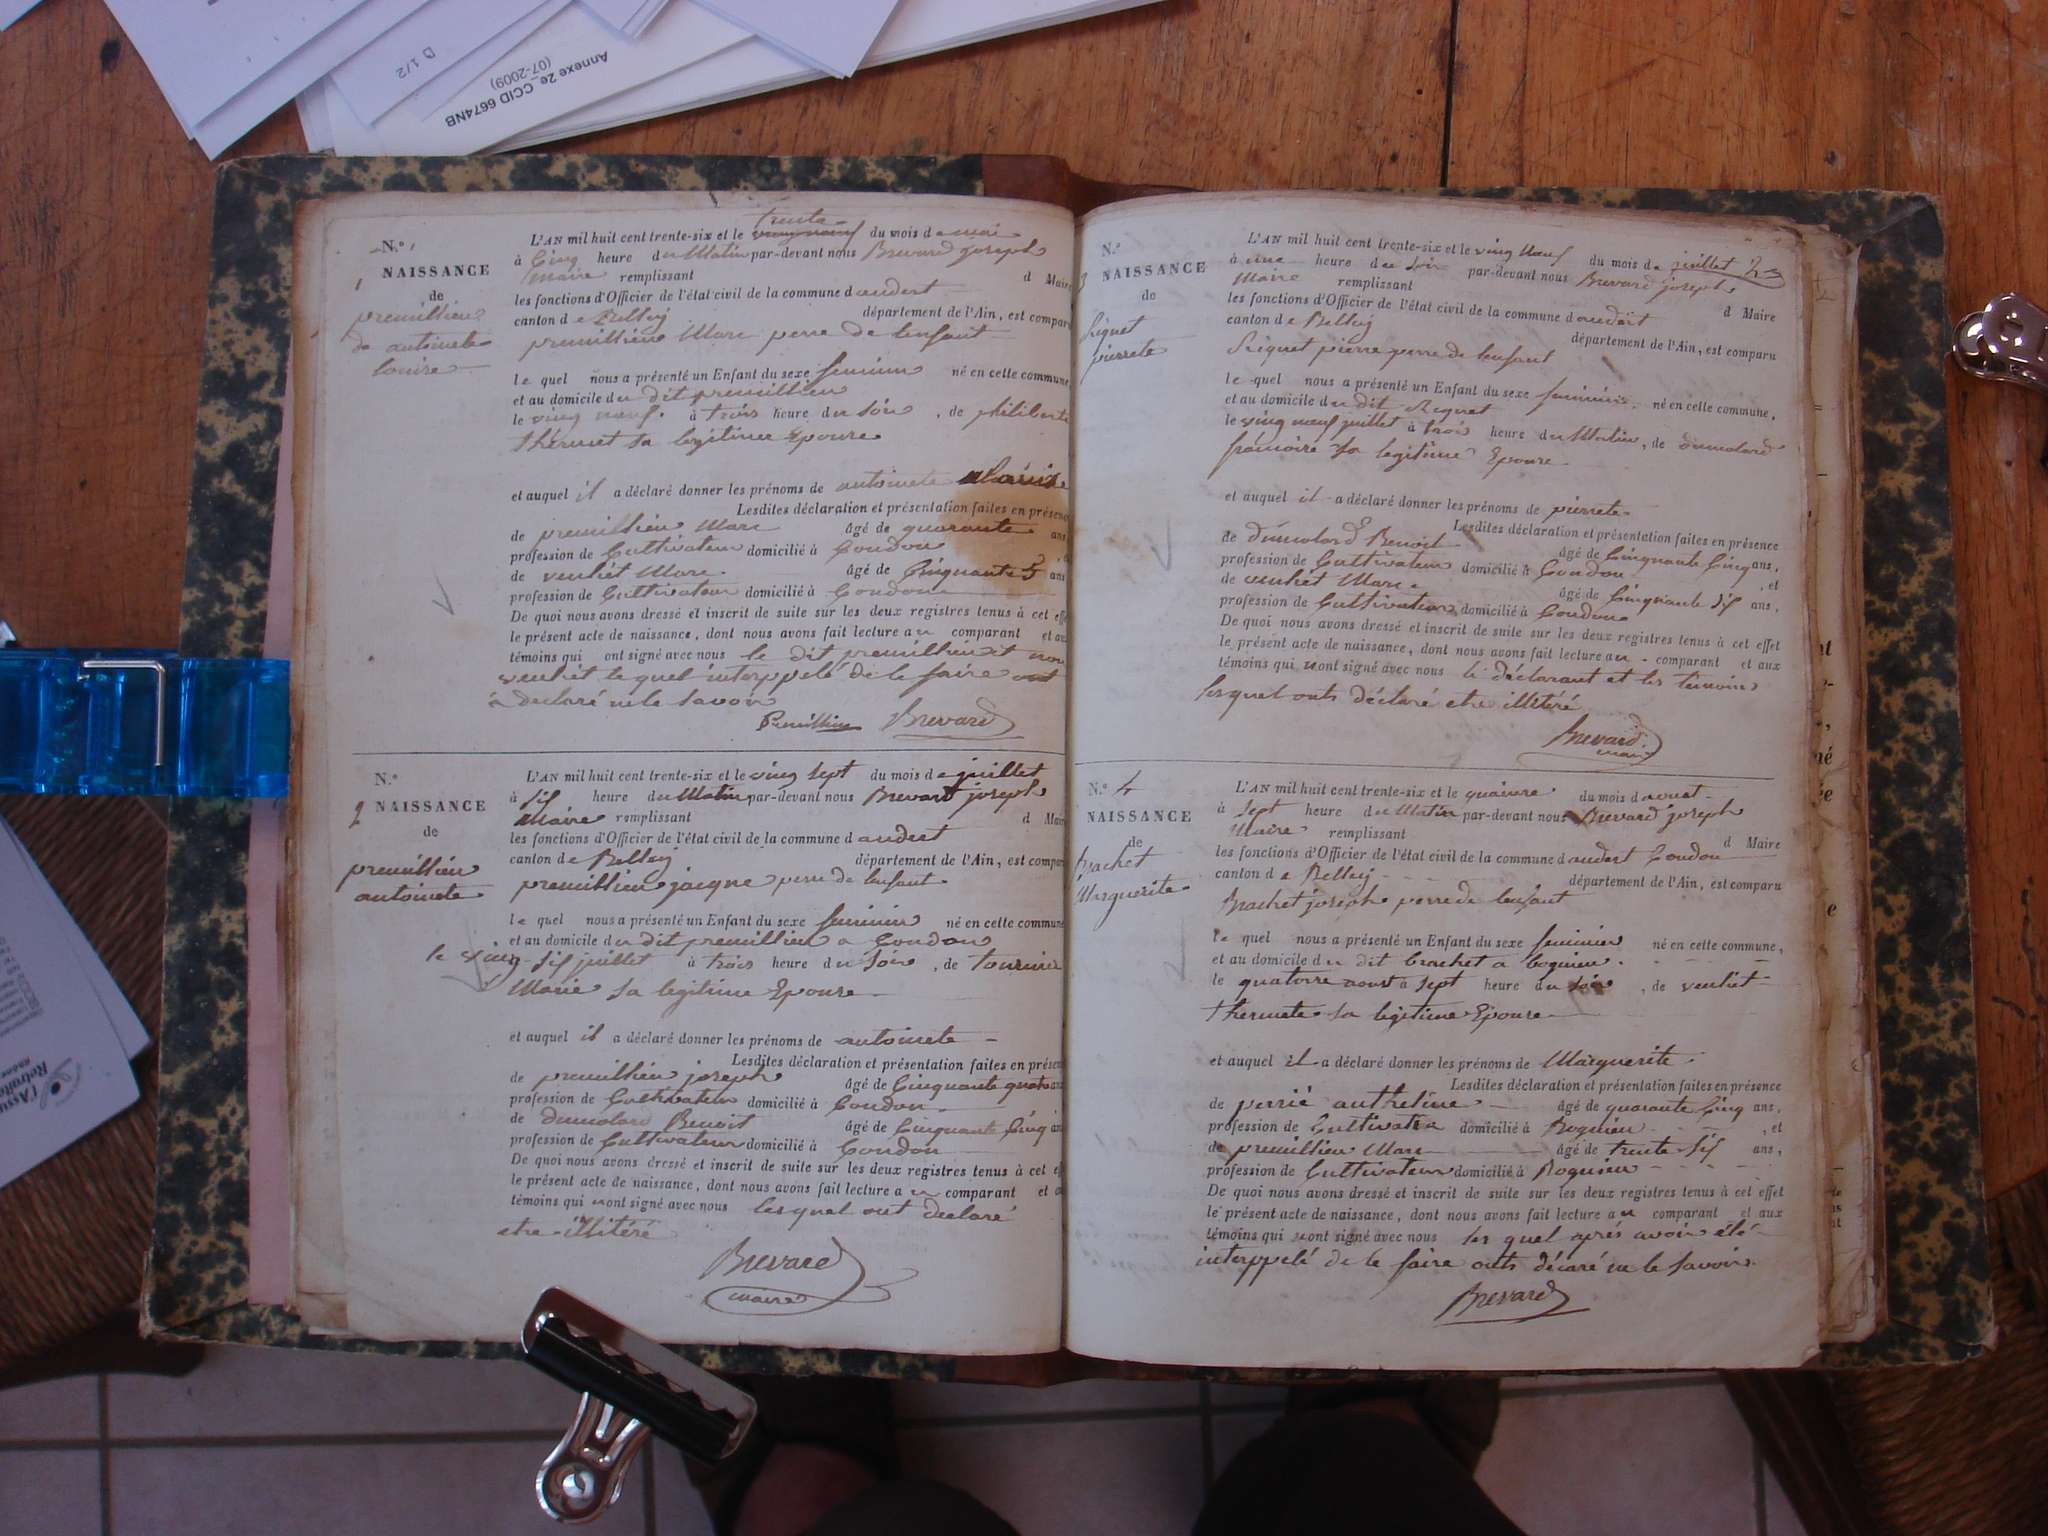 Annexe 2e_CCID 6674NB
(07-2009)
D 1/2
N.° 1
NAISSANCE
de
premillieu
de antoinete
louise
L'AN mil huit cent trente-six et le trente du mois de mai
à Cinq heure du Matin par-devant nous Brevard joseph
Maire remplissant d Maire
les fonctions d'Officier de l'état civil de la commune d andert
canton de Belley département de l'Ain, est comparu
premillieu Marc perre de lenfant
le quel nous a présenté un Enfant du sexe feminin né en cette commune
et au domicile du dit premillieu
le ving neuf à trois heure du soir, de philiberte
thermet sa legitime Epouse
et auquel il a déclaré donner les prénoms de antoinete louise
Lesdites déclaration et présentation faites en présence
de premillieu Marc âgé de quarante ans
profession de Cultivateur domicilié à Condon
de veuliet Marc âgé de Cinquante 5 ans
profession de Cultivateur domicilié à Condon
De quoi nous avons dressé et inscrit de suite sur les deux registres tenus à cet effet
le présent acte de naissance, dont nous avons fait lecture au comparant et aux
témoins qui ont signé avec nous le dit premillieu et non
veuliet le quel interppelé de le faire ont
à declaré ne le savoir
Premillieu Brevard
N.°
2 NAISSANCE
de
premillieu
antoinete
L'AN mil huit cent trente-six et le ving sept du mois de juillet
à six heure du Matin par-devant nous Brevard joseph
Maire remplissant d Maire
les fonctions d'Officier de l'état civil de la commune d andert
canton de Belley département de l'Ain, est comparu
premillieu jacque perre de lenfant
le quel nous a présenté un Enfant du sexe feminin né en cette commune
et au domicile du dit premillieu a Condon
le ving six juillet à trois heure du soir, de
Marie sa legitime Epouse
et auquel il a déclaré donner les prénoms de antoinete
Lesdites déclaration et présentation faites en présence
de premillieu joseph âgé de Cinquante quatre ans
profession de Cultivateur domicilié à Condon
de dumolard Benoit âgé de Cinquante Cinq ans
profession de Cultivateur domicilié à Condon
De quoi nous avons dressé et inscrit de suite sur les deux registres tenus à cet effet
le présent acte de naissance, dont nous avons fait lecture au comparant et aux
témoins qui nont signé avec nous lesquel ont declaré
etre illitéré
Brevard
maire
N.°
3 NAISSANCE
de
Siquet
pierrete
L'AN mil huit cent trente-six et le ving neuf du mois de juillet
à une heure du soir par-devant nous Brevard joseph
Maire remplissant d Maire
les fonctions d'Officier de l'état civil de la commune d andert
canton de Belley département de l'Ain, est comparu
Siquet pierre perre de lenfant
le quel nous a présenté un Enfant du sexe feminin né en cette commune,
et au domicile du dit Siquet
le ving neuf juillet à trois heure du Matin, de dumolard
franoise sa legitime Epouse
et auquel il a déclaré donner les prénoms de pierrete
Lesdites déclaration et présentation faites en présence
de dumolard Benoit âgé de Cinquante Cinq ans,
profession de Cultivateur domicilié à Condon, et
de veuliet Marc âgé de Cinquante six ans,
profession de Cultivateur domicilié à Condon
De quoi nous avons dressé et inscrit de suite sur les deux registres tenus à cet effet
le présent acte de naissance, dont nous avons fait lecture au comparant et aux
témoins qui nont signé avec nous le déclarant et les temoins
lesquel onts déclaré etre illitéré
Brevard
maire
N.° 4
NAISSANCE
de
Brachet
Marguerite
L'AN mil huit cent trente-six et le quainre du mois d aoust
à sept heure du Matin par-devant nous Brevard joseph
Maire remplissant d Maire
les fonctions d'Officier de l'état civil de la commune d andert Condon
canton de Belley département de l'Ain, est comparu
Brachet joseph perre de lenfant
le quel nous a présenté un Enfant du sexe feminin né en cette commune,
et au domicile du dit brachet a bognieu
le quatorre aoust à sept heure du soir, de veuliet
thermete sa legitime Epouse
et auquel il a déclaré donner les prénoms de Marguerite
Lesdites déclaration et présentation faites en présence
de perrié anthelme âgé de quarante Cinq ans,
profession de Cultivateu domicilié à Bognieu, et
de premillieu Marc âgé de trente six ans,
profession de Cultivateur domicilié à Bognieu
De quoi nous avons dressé et inscrit de suite sur les deux registres tenus à cet effet
le présent acte de naissance, dont nous avons fait lecture au comparant et aux
témoins qui nont signé avec nous les quel aprés avoir été
interppelé de le faire onts décaré ne le savoir
Brevard
l'Assu
Retraite